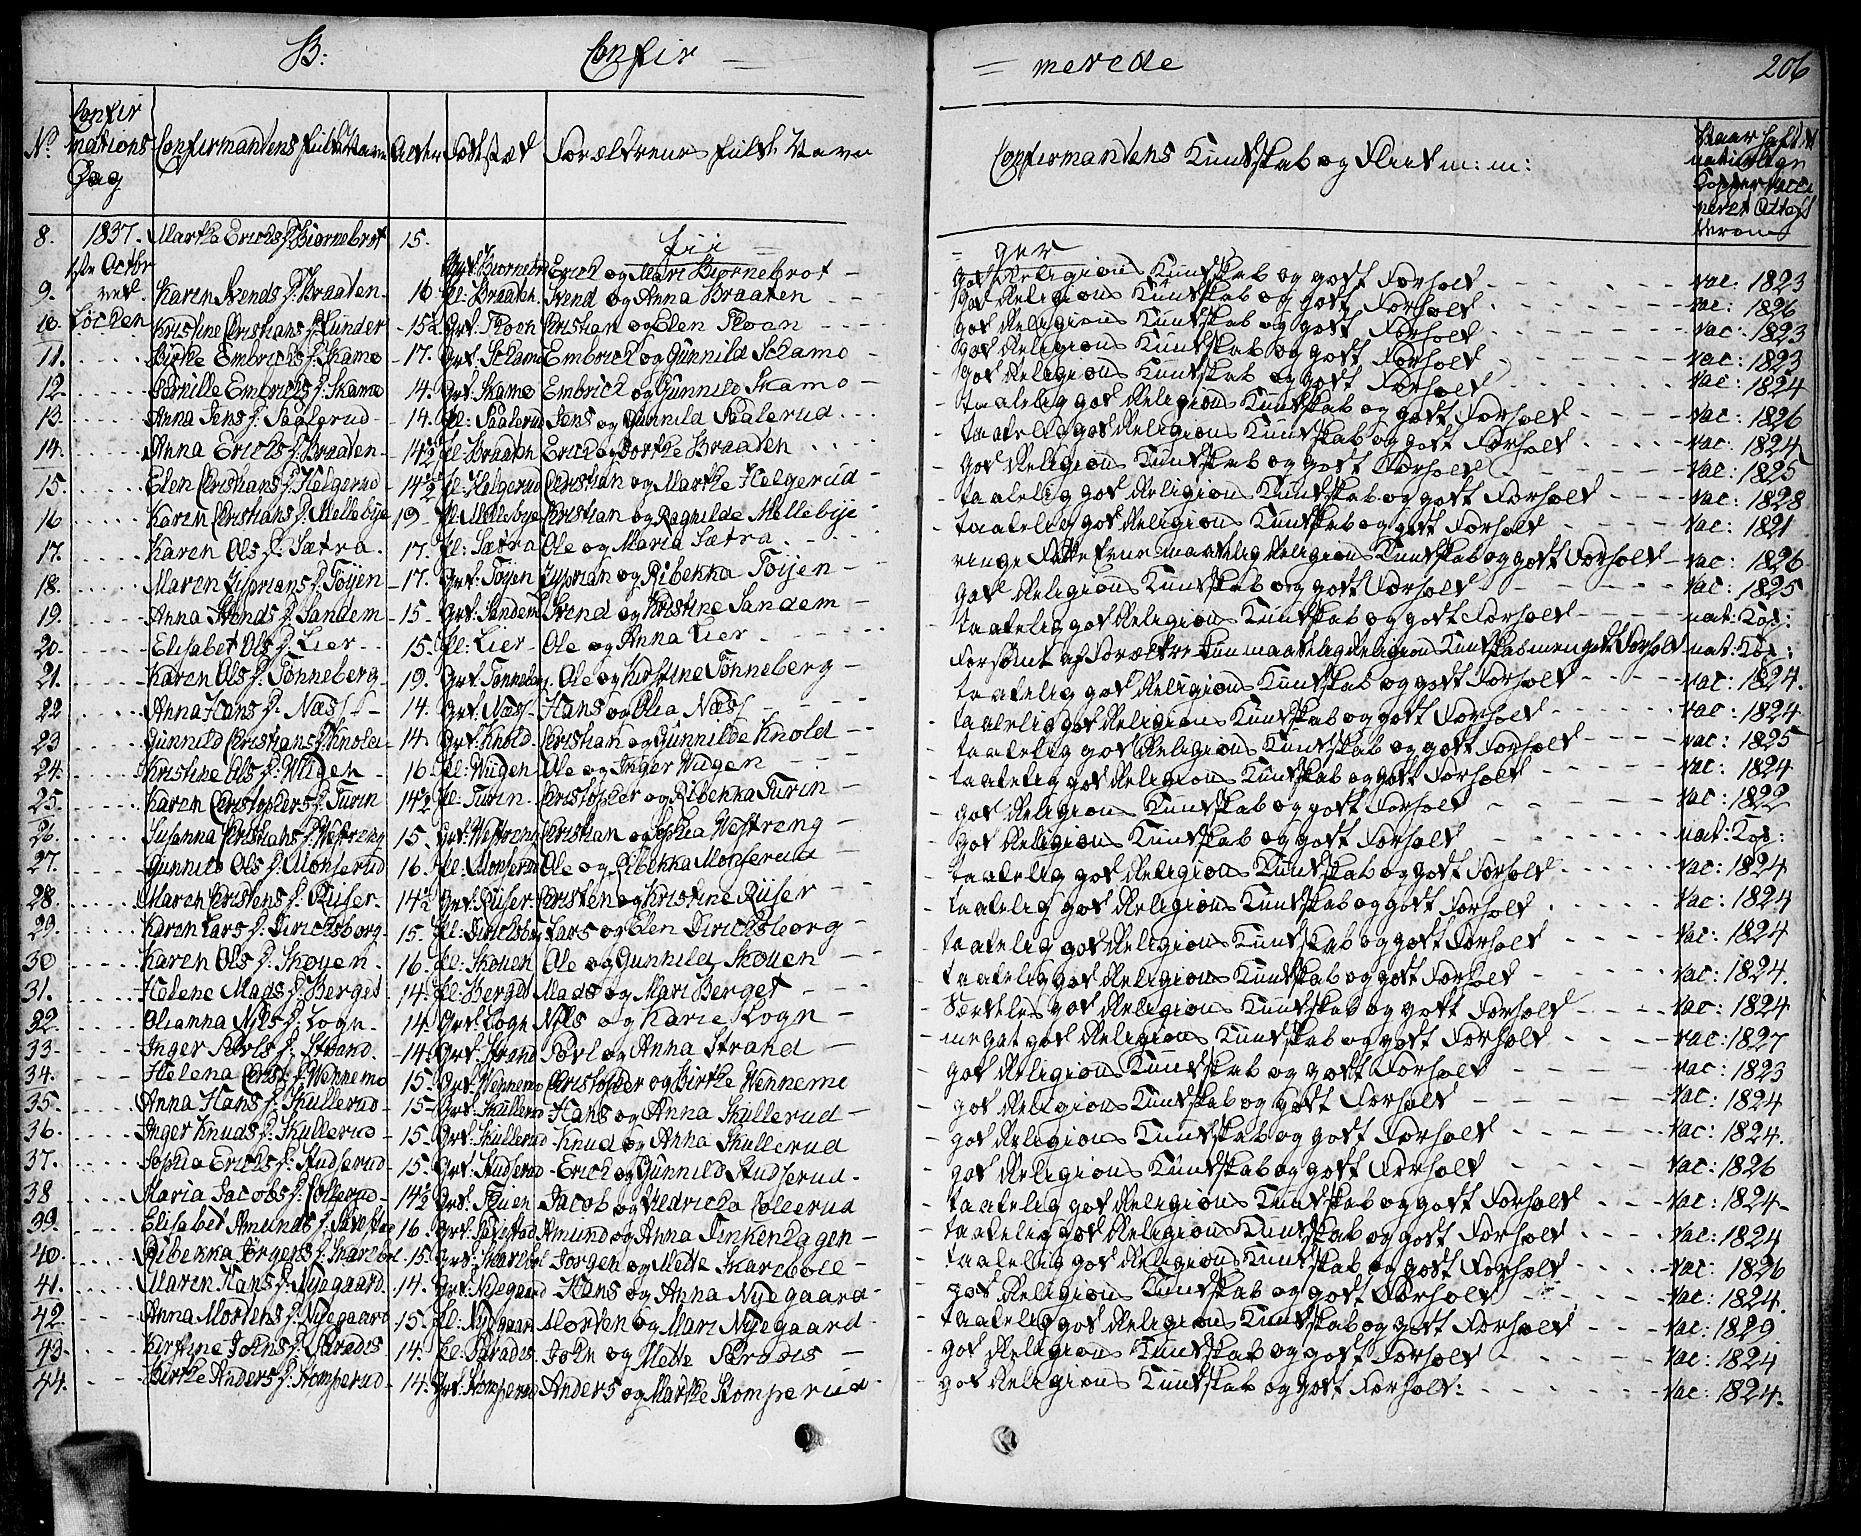 B: Confir = = merede 206
No Confirmations Dag Confirmandens fulde Navn Alder Fødested Forældrenes fulde Navn Confirmandens Kundskab og Flid m: m:
8. 1837. Marthe Erichs D: Biørnebrot 15. Pii = = ger
1ste Octbr Erich og Mari Biørnebrot – god Religions Kundskab og godt Forhold vac: 1823
9. ved Karen Svends D: Braaten 16 Pl: Braaten Svend og Anna Braaten god Religions Kundskab og godt Forhold vac: 1826
10. Løchen Kristine Christians D: Lunder 15½ Grd: Skoon Christian og Elen Skoon god Religions Kundskab og godt Forhold vac: 1823
11. Birthe Embrichs D: Skamo 17. Grd: Schamo Embrich og Gunnild Schamo god Religions Kundskab og godt Forhold vac: 1823
12. Pernille Embrichs D: Skamo 14. Grd: Skamo Embrich og Gunnild Skamo god Religions Kundskab og godt Forhold vac: 1824
13. Anna Jens D: Saglerud 14. Pl: Saalerud Jens og Gunnild Saalerud taalelig god Religions Kundskab og godt Forhold vac: 1826
14. Anna Erichs D: Braaten 14½ Pl: Braaten Erich og Dorthe Braaten taalelig god Religions Kundskab og godt Forhold vac: 1824
15. Elen Christians D: Helgerud 14½ Pl: Helgerud Christian og Marthe Helgerud god Religions Kundskab og godt Forhold vac: 1825
16 Karen Christians D: Mellebye 19 Pl: Mellebye Christian og Ragnilde Mellebye taalelig god Religions Kundskab og godt Forhold vac: 1828
17. Karen Ols D: Sætra 17. Pl: Sætra Ole og Maria Sætra taalelig god Religions Kundskab og godt Forhold vac: 1821
18. Maren Zyprians D: Tøyen 17. Grd: Tøyen Zyprian og Ribekka Tøijen ringe Fatte Evne maadelig Religions Kundskab og godt Forhold vac: 1826
19. Anna Svends D: Sandem 15 Grd: Sandem Svend og Kristine Sandem god Religions Kundskab og godt Forhold vac: 1825
20. Elisabet Ols D: Lier 15. Pl: Lier Ole og Anna Lier taalelig god Religions Kundskab og godt Forhold nat: Kop:
21. Karen Ols D: Tønneberg 19. Grd: Tønneberg Ole og Kirstine Tønneberg Forsømt af Forældre kun maadelig Religions Kundskab men godt Forhold nat: Kop:
22 Anna Hans D: Næss 14. Grd: Næss Hans og Olia Næss taalelig god Religions Kundskab og godt Forhold vac: 1824.
23 Gunnild Christians D: Knold 14 Grd: Knold Christian og Gunnilde Knold taalelig god Religions Kundskab og godt Forhold vac: 1824
24. Kristine Ols D: Wiigen 16. Pl: Wiigen Ole og Inger Wiigen taalelig god Religions Kundskab og godt Forhold vac: 1825
25. Karen Christophers D: Turin 14½ Pl: Turin Christopher og Ribekka Turin taalelig god Religions Kundskab og godt Forhold vac: 1824
26. Susanna Christians D: Westreng 15. Grd: Westreng Christian og Sophia Westreng god Religions Kundskab og godt Forhold vac: 1822
27. Gunnild Ols D: Monserud 16. Pl: Monserud Ole og Ribekka Monserud god Religions Kundskab og godt Forhold nat: Kop:
28. Maren Christens D: Riiser 14½ Grd: Riiser Christen og Kristine Riiser taalelig god Religions Kundskab og godt Forhold vac: 1824
29. Karen Lars D: Dirichsborg 15. Pl: Dirichsborg Lars og Elen Dirichsborg taalelig god Religions Kundskab og godt Forhold vac: 1824
30 Karen Ols D: Skouen 16. Pl: Skouen Ole og Gunnild Skouen taalelig god Religions Kundskab og godt Forhold vac: 1824
31. Helene Mads D: Berget 14. Pl: Berget Mads og Mari Berget taalelig god Religions Kundskab og godt Forhold vac: 1824.
32. Olianna Nils D: Logn 14. Grd: Logn Nils og Karie Logn Særdeles god Religions Kundskab og godt Forhold vac: 1824
33. Inger Povls D: Strand 14. Grd: Strand Povl og Anna Strand meget god Religions Kundskab og godt Forhold vac: 1827
34. Helena Christ: D: Wennemo 15. Grd: Wennemo Christopher og Birthe Wenneme god Religions Kundskab og godt Forhold vac: 1823
35. Anna Hans D: Skullerud 15 Grd: Skullerud Hans og Anna Skullerud god Religions Kundskab og godt Forhold vac: 1824
36. Inger Knuds D: Skullerud 15. Grd: Skullerud Knud og Anna Skullerud god Religions Kundskab og godt Forhold vac: 1824.
37. Sophia Erichs D: Studserud 15. Grd: Studserud Erich og Gunnild Studserud god Religions Kundskab og godt Forhold vac: 1826
38 Maria Jacobs D: Collerud 14½ Grd: Jacob og Fredricha Collerud taalelig god Religions Kundskab og godt Forhold vac: 1824
39. Elisabet Amunds D: 16. Amund og Anna Finkenhagen taalelig god Religions Kundskab og godt Forhold vac: 1824
40. Ribekka Jørgens D: Skarbøl 15. Grd: Skarbøl Jørgen og Mette Skarbøll taalelig god Religions Kundskab og godt Forhold vac: 1826
41. Maren Hans D: Nyegaard 14. Grd: Nyegaard Hans og Anna Nyegaard god Religions Kundskab og godt Forhold vac: 1824.
42. Anna Mortens D: Nyegaard 15. Pl: Nyegaard Morten og Mari Nyegaard taalelig god Religions Kundskab og godt Forhold vac: 1829
43. Kirstine Johns D: Paradis 14. Pl: Paradis John og Mette Paradis god Religions Kundskab og godt Forhold vac: 1824
44. Birthe Anders D: Stomperud 14. Grd: Stomperud Anders og Marthe Stomperud god Religions Kundskab og godt Forhold: vac: 1824.